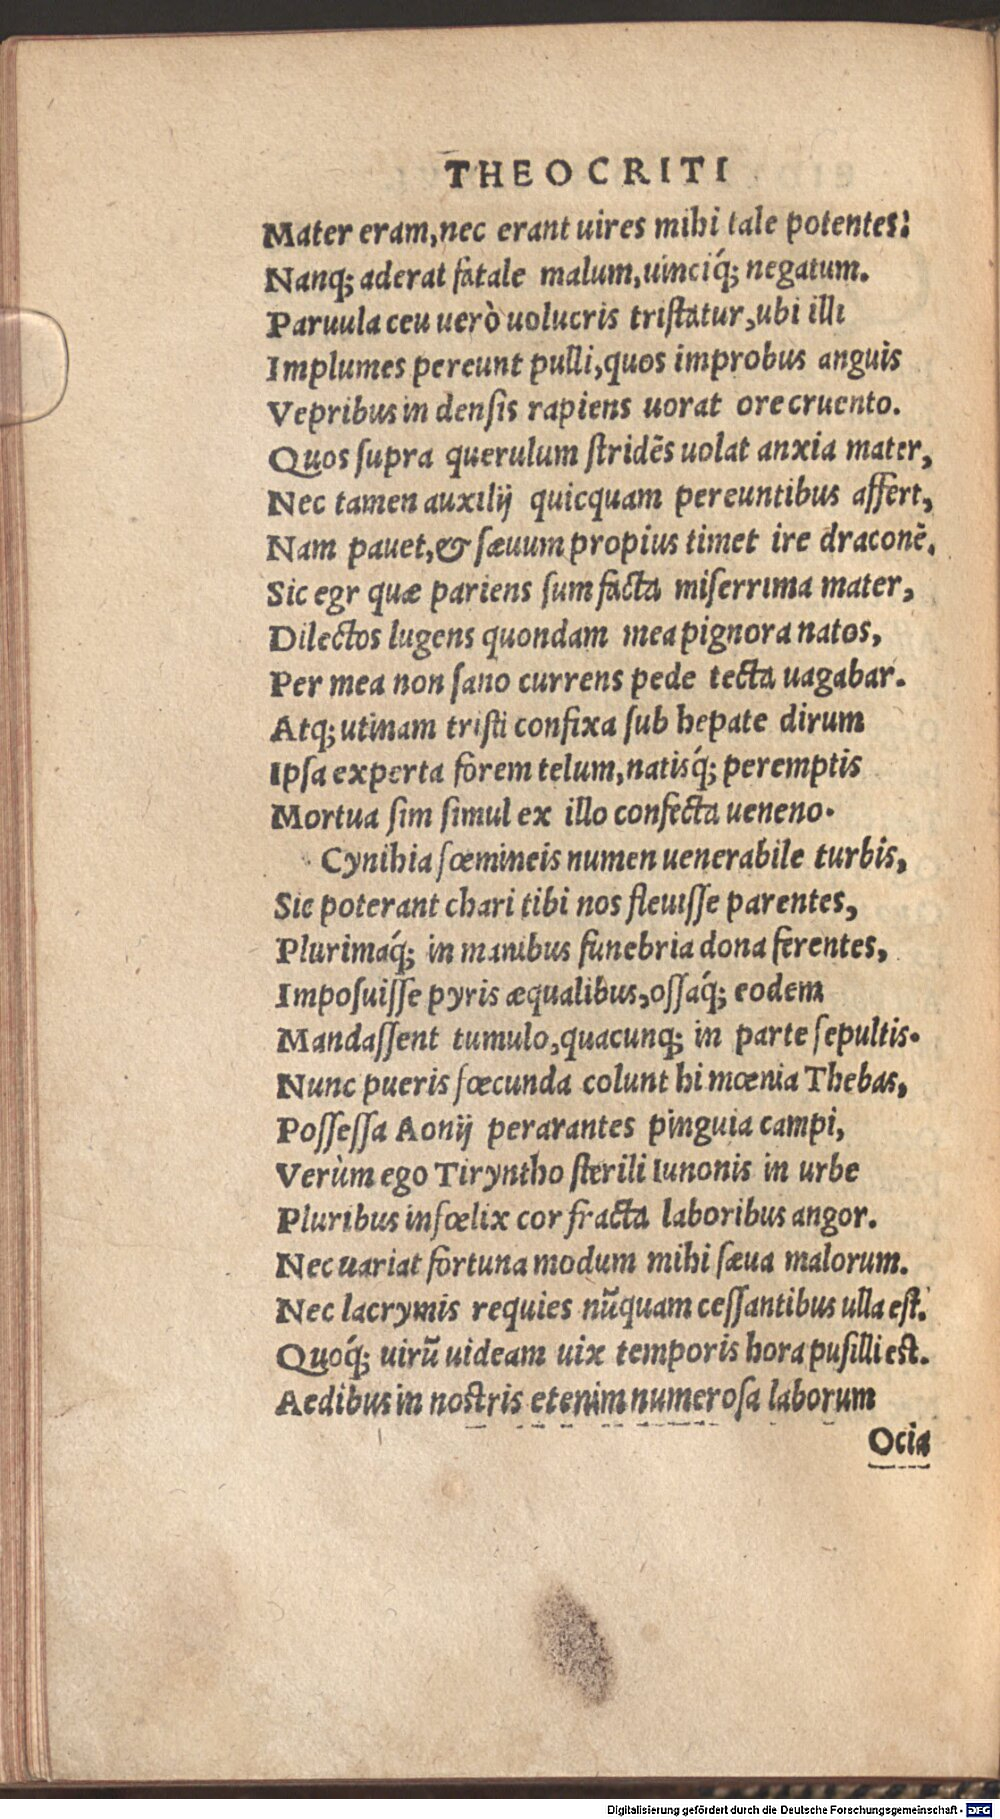 THEOCRITI
Mater eram, nec erant uires mihi tale potentes:
Nanq; aderat fatale malum, uinciq́; negatum.
Paruula ceu uerò uolucris tristatur, ubi illi
Implumes pereunt pulli, quos improbus anguis
Vepribus in densis rapiens uorat ore cruento.
Quos supra querulum stridẽs uolat anxia mater,
Nec tamen auxilij quicquam pereuntibus affert,
Nam pauet, & sæuum propius timet ire draconẽ.
Sic egr quæ pariens sum facta miserrima mater,
Dilectos lugens quondam mea pignora natos,
Per mea non sano currens pede tecta uagabar.
Atq; utinam tristi confixa sub hepate dirum
Ipsa experta forem telum, natisq́; peremptis
Mortua sim simul ex illo confecta ueneno.
Cynthia fœmineis numen uenerabile turbis,
Sic poterant chari tibi nos fleuisse parentes,
Plurimaq́; in manibus funebria dona ferentes,
Imposuisse pyris æqualibus, ossaq́; eodem
Mandassent tumulo, quacunq; in parte sepultis.
Nunc pueris fœcunda colunt hi mœnia Thebas,
Possessa Aonij perarantes pinguia campi,
Verùm ego Tiryntho sterili Iunonis in urbe
Pluribus infœlix cor fracta laboribus angor.
Nec uariat fortuna modum mihi sæua malorum.
Nec lacrymis requies nũquam cessantibus ulla est.
Quoq́; uirũ uideam uix temporis hora pusilli est.
Aedibus in nostris etenim numerosa laborum
Ocia
Digitalisierung gefördert durch die Deutsche Forschungsgemeinschaft - DFG